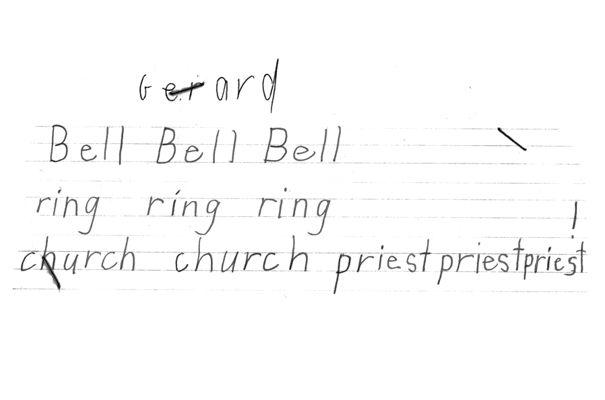 Gerard
Bell Bell Bell
ring ring ring
church church priest priest priest